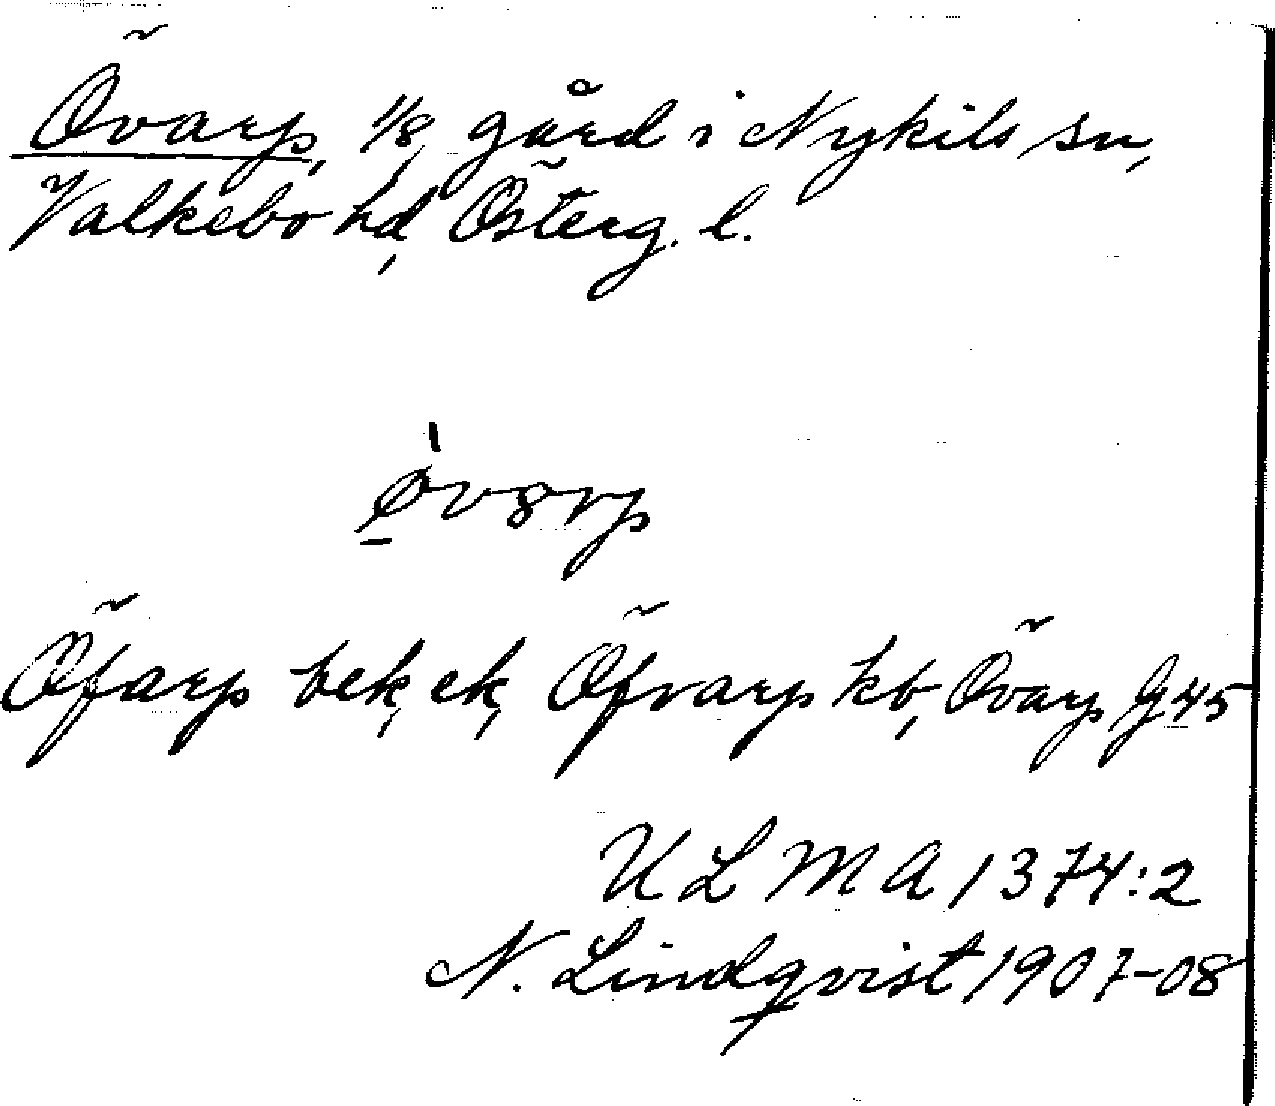 Övarp, 1/8 gård i Nykils sn,
Valkebo hd, Österg. l.
ø̀v8rp
Öfarp bek, ek, Öfvarp kb, Övarp G 45
ULMA 1374:2
N. Lindqvist 1907-08